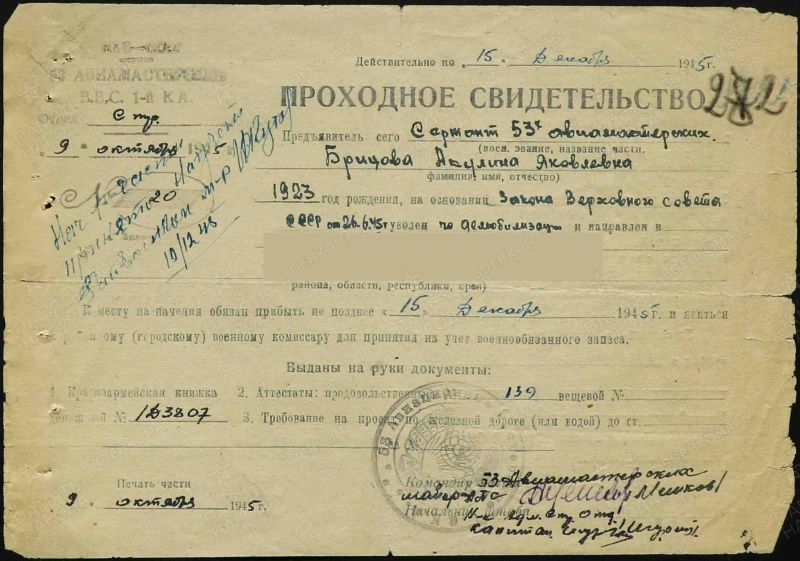 Действительно по „ 15 „ Декабря 1945г.
53 АВИАМАСТЕРСКИЕ
В.В.С. 1-й К.А.
Отдел Стр.
9 октября 1945
ПРОХОДНОЕ СВИДЕТЕЛЬСТВО
272
Предъявитель сего Сержант 53х авиамастерских.
(воен. звание, название части.
Брицова Акулина Яковлевна
фамилия, имя, отчество)
1923 год рождения, на основании Закона Верховного совета
СССР от 26.6.45г уволен по демобилизации и направлен в
10/12 45
района, области, республики, края)
К месту назначения обязан прибыть не позднее „15„ Декабря 1945г. и явиться
(городскому) военному комиссару для принятия на учет военнообязанного запаса.
Выданы на руки документы:
1. Красноармейская книжка 2. Аттестаты: продовольственный 139 вещевой №
№ 1D3807 3. Требование на проезд по железной дороге (или водой) до ст.
Печать части
9 октября 1945г.
Командир 53 Авиамастерских
майор
Начальник штаба
капитан